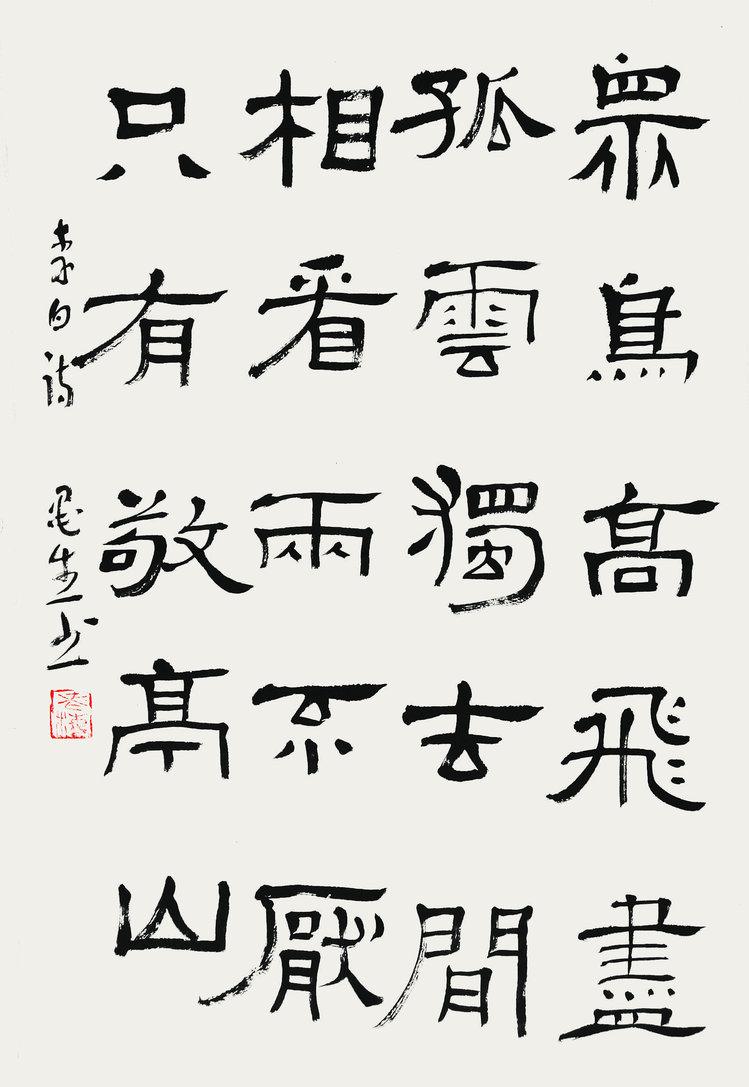 衆鳥高飛盡
孤雲獨去間
相看兩不厭
只有敬亭山
李白詩
墨生书